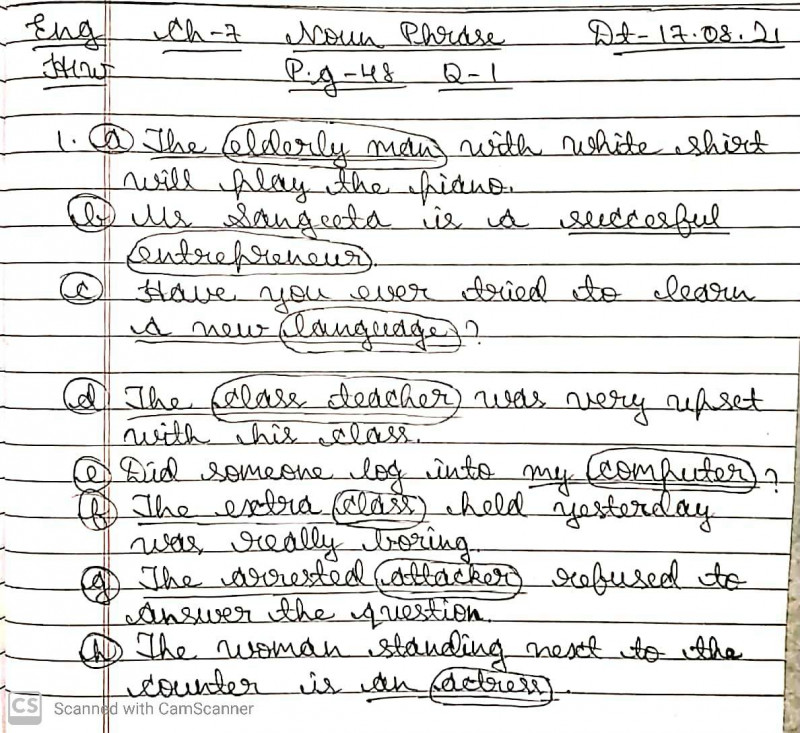 Eng Ch-7 Noun Phrase Dt-17.08.21
H.W P.g-48 Q-1
1. a The elderly man with white shirt
will play the piano.
b Ms Sangeeta is a succesful
entrepreneur.
c Have you ever tried to learn
a new language?
d The class teacher was very upset
with his class.
e Did someone log into my computer?
f The extra class held yesterday
was really boring.
g The arrested attacker refused to
answer the question.
h The woman standing next to the
counter is an actress.
CS Scanned with CamScanner